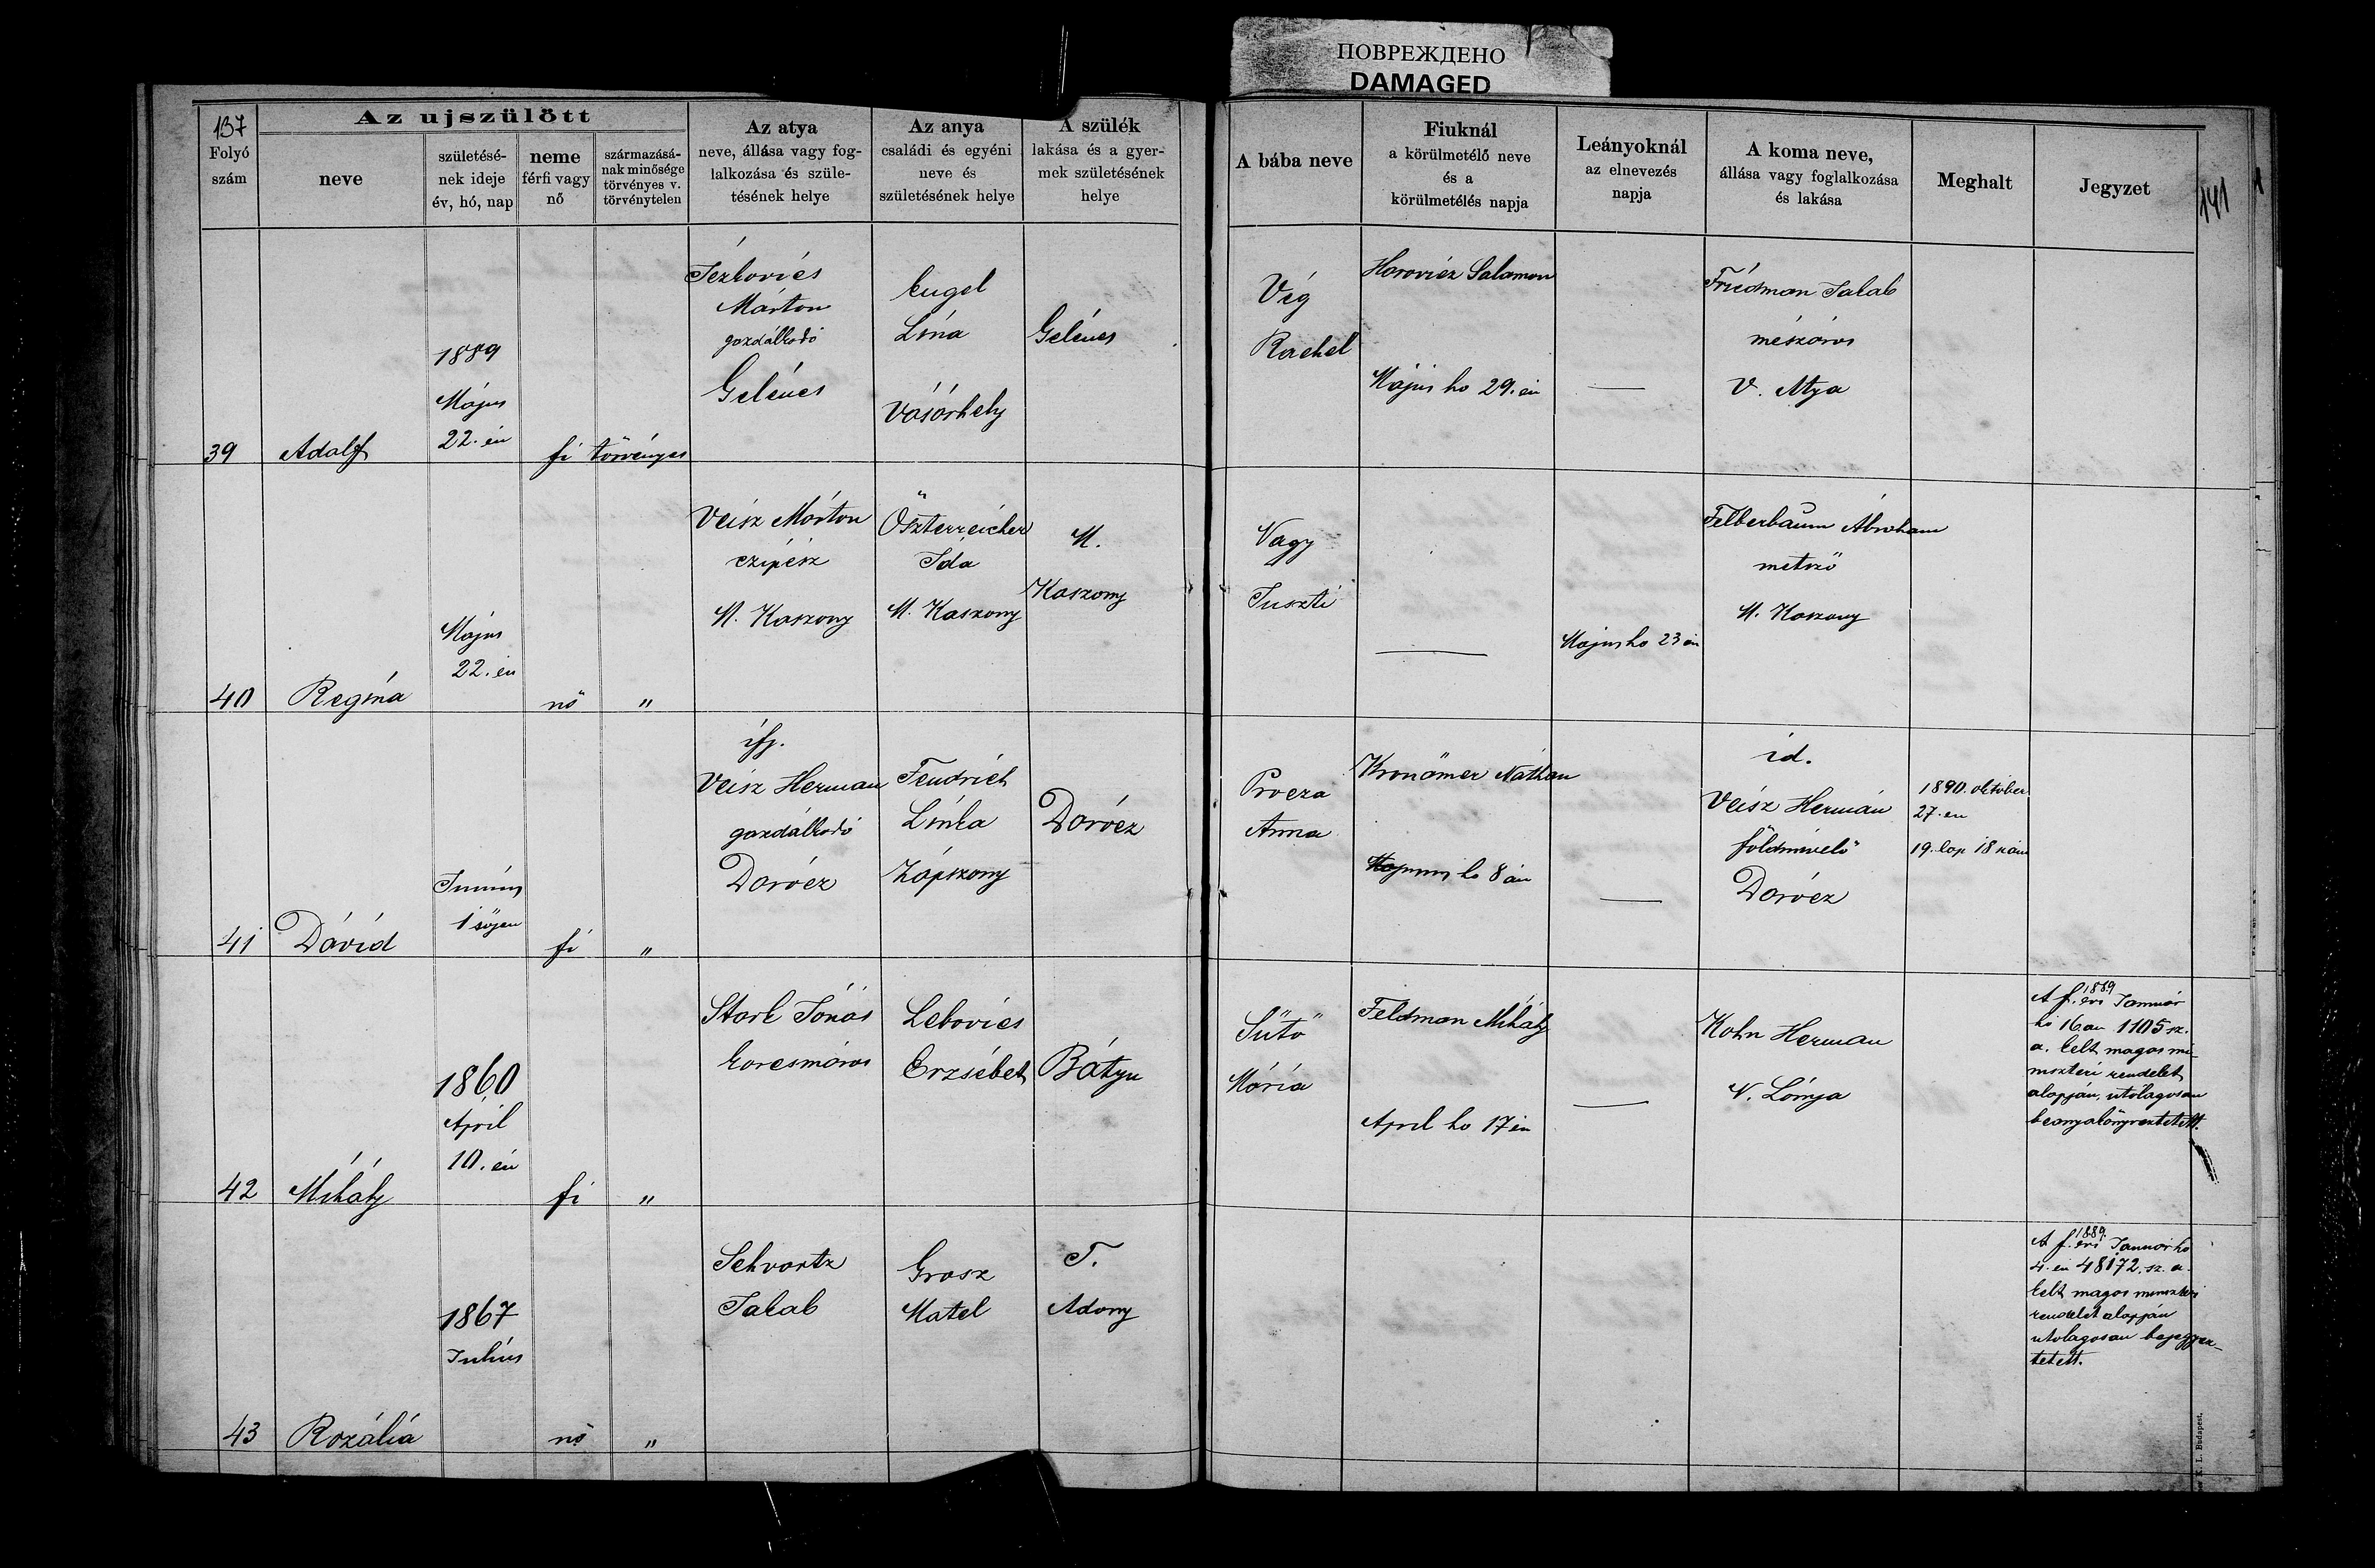 ПОВРЕЖДЕНО
DAMAGED
137
141
Az ujszülött
Folyó
szám
neve
születésé-
nek ideje
év, hó, nap
neme
férfi vagy
nő
származásá-
nak minősége
törvényes v.
törvénytelen
Az atya
neve, állása vagy fog-
lalkozása és szüle-
tésének helye
Az anya
családi és egyéni
neve és
születésének helye
A szülék
lakása és a gyer-
mek születésének
helye
A bába neve
Fiuknál
a körülmetélő neve
és a
körülmetélés napja
Leányoknál
az elnevezés
napja
A koma neve,
állása vagy foglalkozása
és lakása
Meghalt
Jegyzet
39
Adalf
1889
Május
22. én
fi
törvényes
Márton
gazdálkodó
Gelénes
Engel
Lina
Vásárhely
Gelénes
Vég
Rachel
Horovicz Salamon
Május ho 29. én
—
Friedman Jakab
mészáros
V. Atya
40
Regina
Május
22. én
nő
"
Veisz Márton
czipész
M. Kaszony
Öszterreicher
Ida
M. Kaszony
M.
Kaszony
Nagy
Juszti
—
Majus ho 23 án
Felberbaum Ábraham
metsző
M. Kaszony
41
Dávid
Junius
1 söjen
fi
"
ifj.
Veisz Herman
gazdálkodó
Darócz
Fendrich
Linka
Zápszony
Darócz
Prveza
Anna
Kronömer Náthan
ho 8 án
—
id.
Veisz Hermán
földmivelő
Darócz
1890. október
27. én
19. lap 18 szám
42
Mihály
1860
April
10. én
fi
"
Stark Jónás
korcsmáros
Lebovics
Erzsébet
Bátyu
Sütő
Mária
Feldman Mihály
April ho 17 én
—
Kohn Herman
N. Lónya
A f. évi 1889 Január
hó 16 án 1105 sz.
a. kelt magas mi-
niszteri rendelet
alapján, utólagosan
beanyakönyveztetett.
43
Rozália
1867
Julius
nő
"
Schvartz
Jakab
Grosz
Matel
T.
Adony
A f. évi 1889. Január ho
4. én 48172. sz. a.
kelt magas miniszteri
rendelet alapján
utolagosan bejegyez-
tetett.
K. L. Budapest.